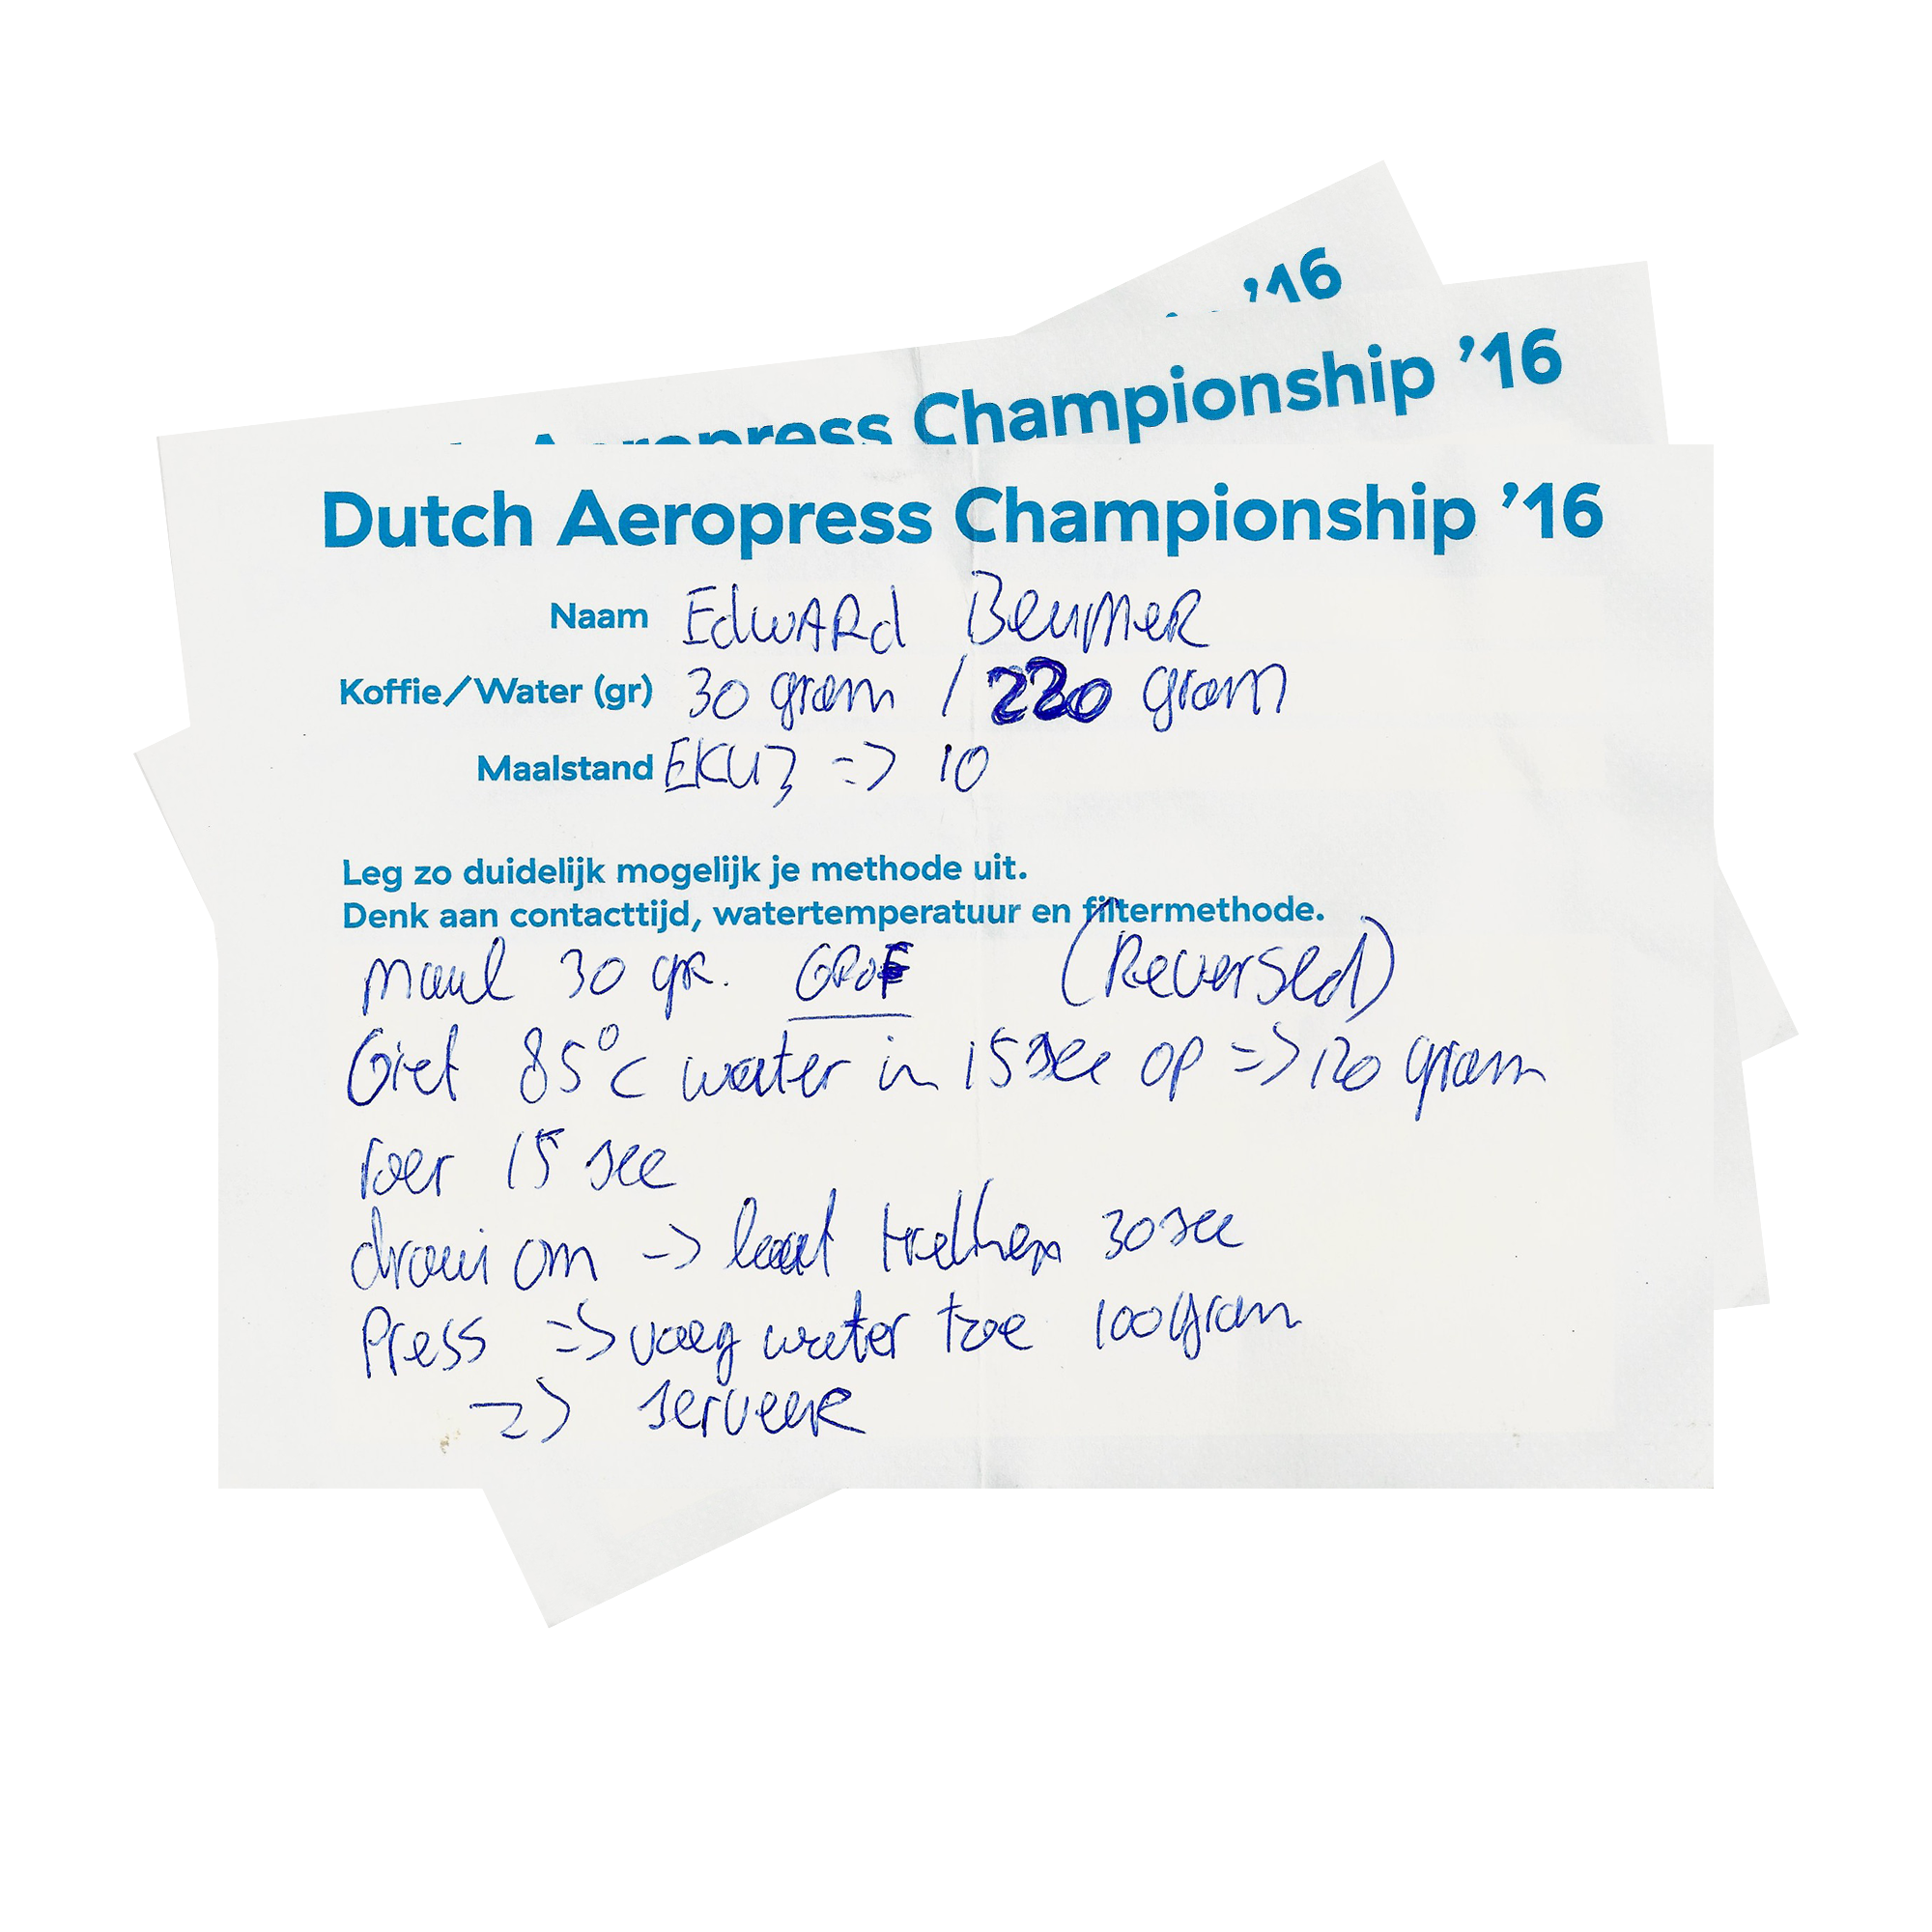 ’16
Aeropress Championship ’16
Dutch Aeropress Championship ’16
Naam Edward Beumer
Koffie/Water (gr) 30 gram / 220 gram
Maalstand EKU3 => 10
Leg zo duidelijk mogelijk je methode uit.
Denk aan contacttijd, watertemperatuur en filtermethode.
Maal 30 gr. GROF (Reversed)
Giet 85°C water in 15 sec op => 120 gram
roer 15 sec
draai om -> laat trekken 30 sec
Press => voeg water toe 100 gram
=> serveer